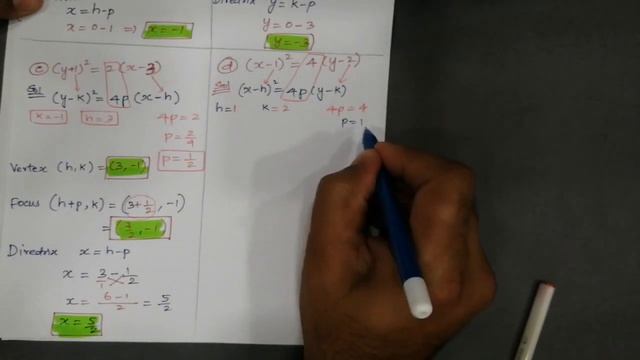 x = h-p
x = 0-1 ⇒ x = -1
Directrix y = k-p
y = 0-3
y = -3
c (y+1)² = 2(x-3)
Sol (y-k)² = 4p(x-h)
k = -1 h = 3
4p = 2
p = 2/4
p = 1/2
Vertex (h,k) = (3,-1)
Focus (h+p,k) = (3+1/2, -1)
= (7/2, -1)
Directrix x = h-p
x = 3/1 - 1/2
x = 6-1/2 = 5/2
x = 5/2
d (x-1)² = 4(y-2)
Sol (x-h)² = 4p(y-k)
h = 1 k = 2 4p = 4
p = 1